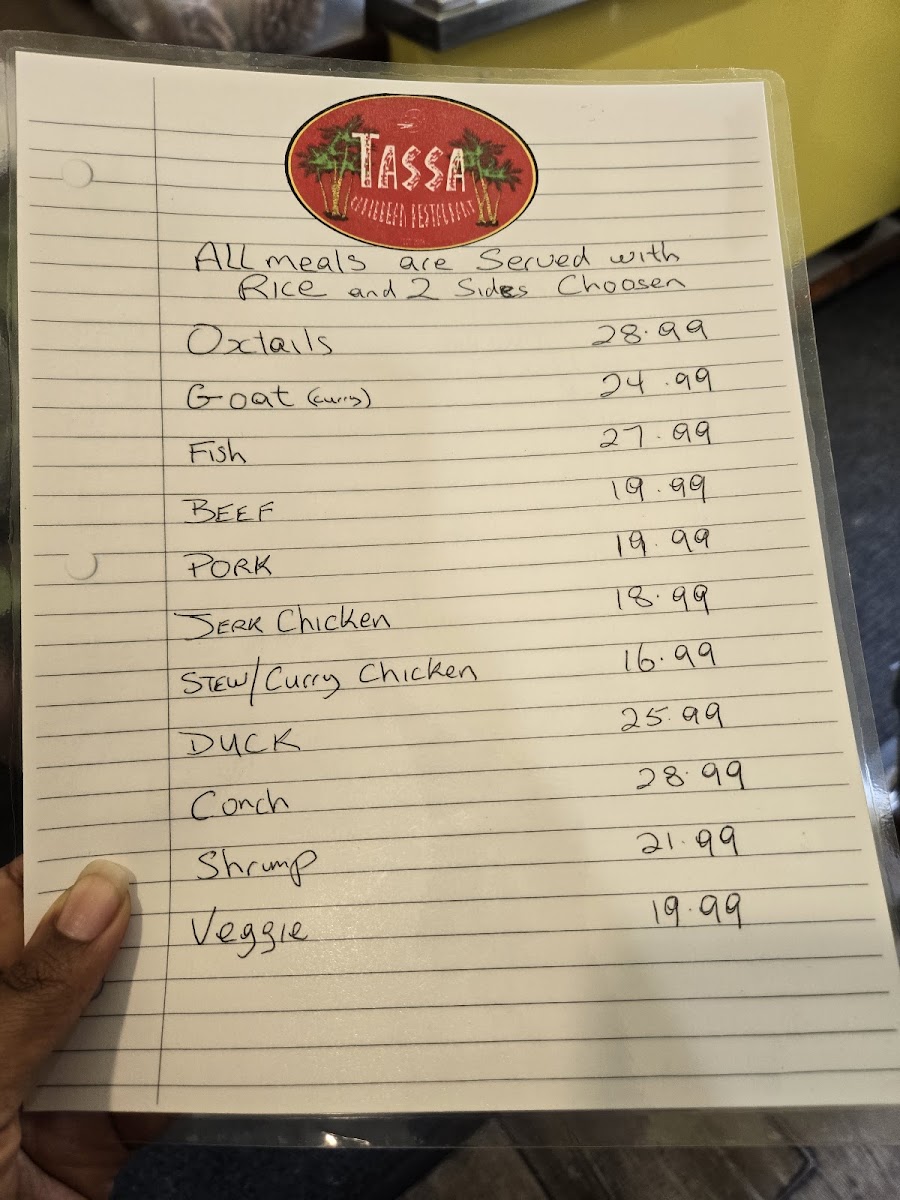 TASSA
CARIBBEAN RESTAURANT
ALL meals are Served with
Rice and 2 Sides Choosen
Oxtails 28.99
Goat (curry) 24.99
Fish 27.99
BEEF 19.99
PORK 19.99
JERK Chicken 18.99
STEW/Curry Chicken 16.99
DUCK 25.99
Conch 28.99
Shrimp 21.99
Veggie 19.99